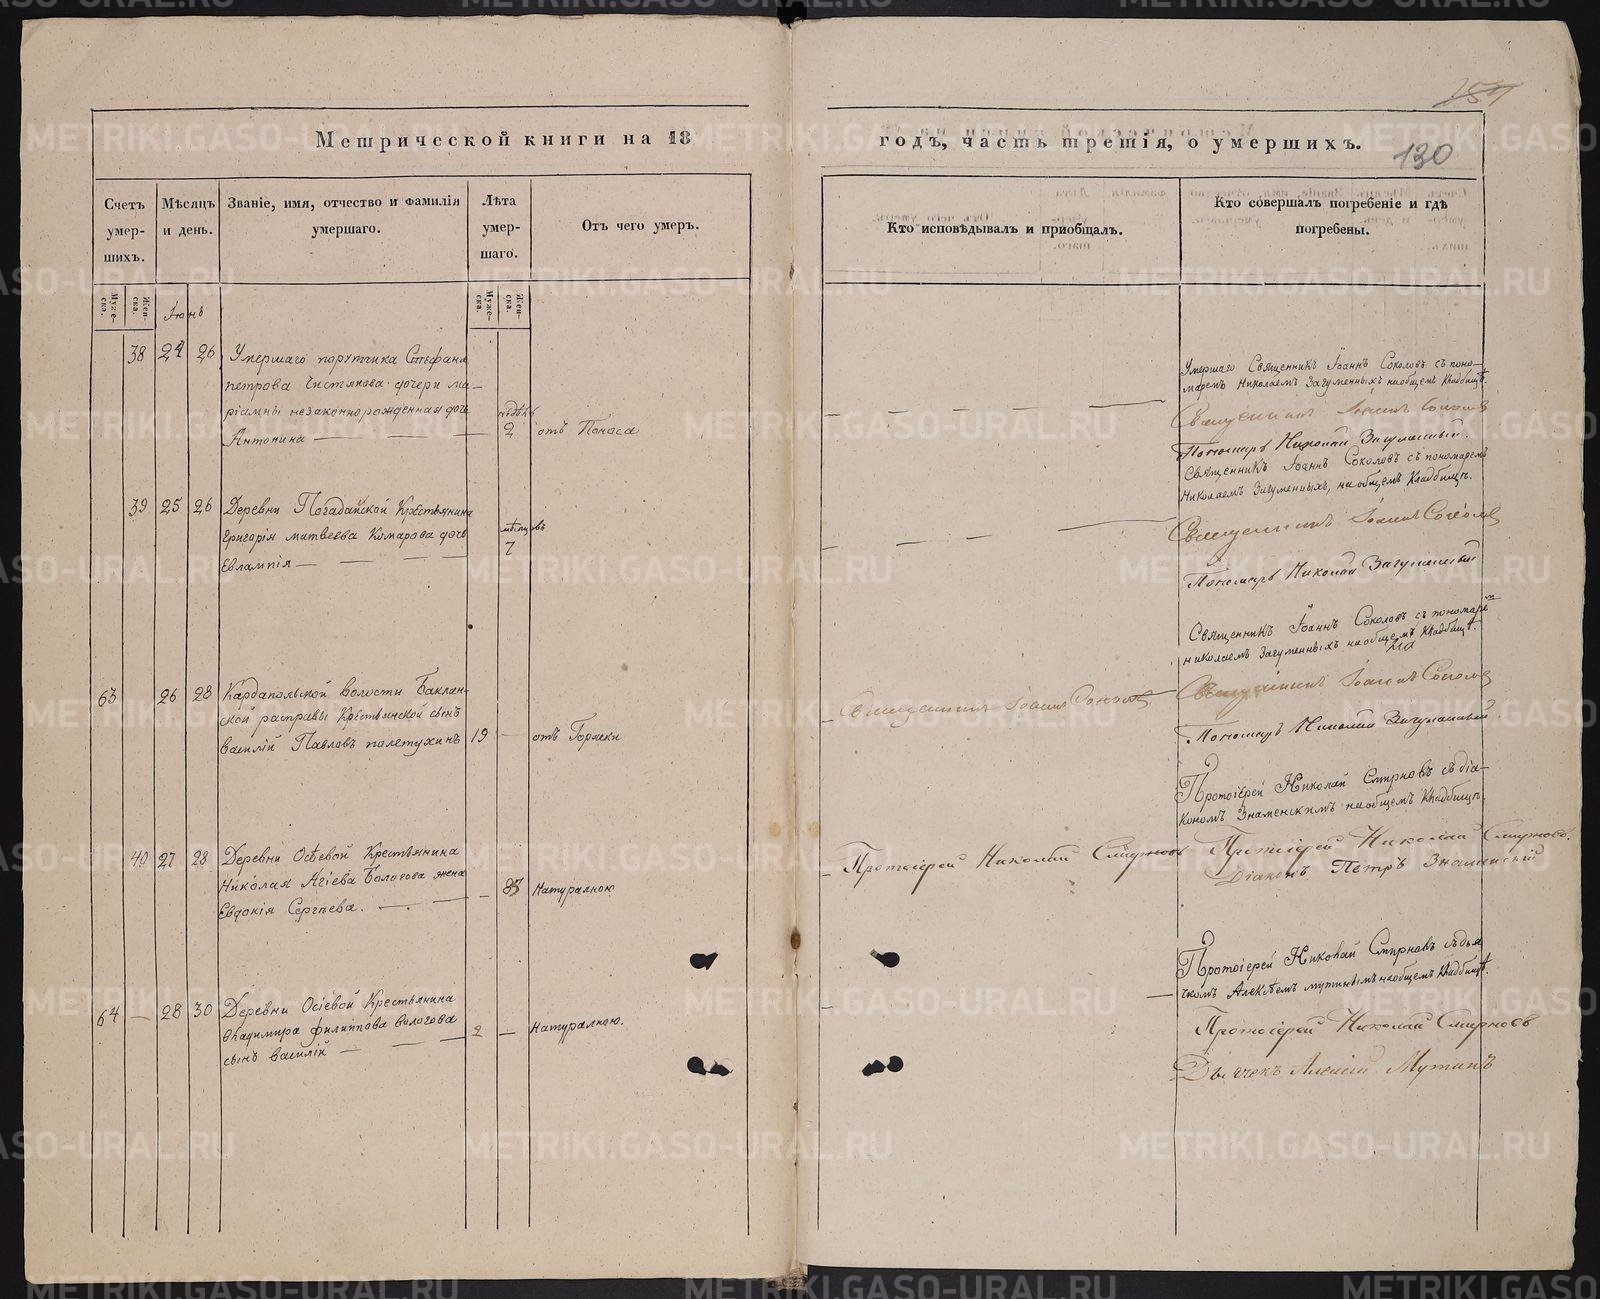 130
Метрической книги на 18
годъ, часть третія, о умершихъ.
Счетъ умер-шихъ.
Мѣсяцъ и день.
Званіе, имя, отчество и фамилія умершаго.
Лѣта умер-шаго.
Отъ чего умеръ.
Кто исповѣдывалъ и пріобщалъ.
Кто совершалъ погребеніе и гдѣ погребены.
Муже-ска.
Жен-ска.
Муже-ска.
Жен-ска.
Іюнь
38 24 26 Умершаго порутчика Стефана
петрова Чистякова дочери ма-
ріамны незаконнорожденная дочь
Антонина
2 отъ Поноса
Священникъ Іоаннъ Соколовъ съ поно-
маремъ Николаемъ Загуменныхъ на общемъ Кладбищѣ.
Священникъ Іоаннъ Соколовъ
Пономарь Николай
39 25 26 Деревни Погадайской Крестьянина
Григорія матвеева Комарова дочь
Евлампія
мѣсяцовъ
7
Священникъ Іоаннъ Соколовъ съ пономаремъ
Николаемъ Загуменныхъ, на общемъ Кладбищѣ.
Священникъ Іоаннъ Соколовъ
Пономарь Николай
63 26 28 волости Баклан-
ской расправы Крестьянской сынъ
василій Павловъ палетухинъ
19 отъ Горячки
Священникъ Іоаннъ Соколовъ
Священникъ Іоаннъ Соколовъ съ пономаре м
николаемъ Загуменныхъ на общемъ Кладбищѣ.
Священникъ Іоаннъ Соколовъ
Пономарь Николай
40 27 28 Деревни Осѣевой Крестьянина
Николая Агіева Бологова жена
Евдокія Сергѣева.
Натуралною
Протоіерей Николай Смирновъ
Протоіерей Николай Смирновъ съ діа-
кономъ Знаменскимъ на общемъ Кладбищѣ.
Протоіерей Николай Смирновъ.
Діаконъ Петръ Знаменскій
64 28 30 Деревни Осіевой Крестьянина
владимира филиппова вологова
сынъ василій
2 Натуралною.
Протоіерей Николай Смирновъ съ дья
чкомъ Алексѣемъ мутинымъ на общемъ Кладбищѣ.
Протоіерей Николай Смирновъ
Дьячекъ Алексій Мутинъ
METRIKI.GASO-URAL.RU